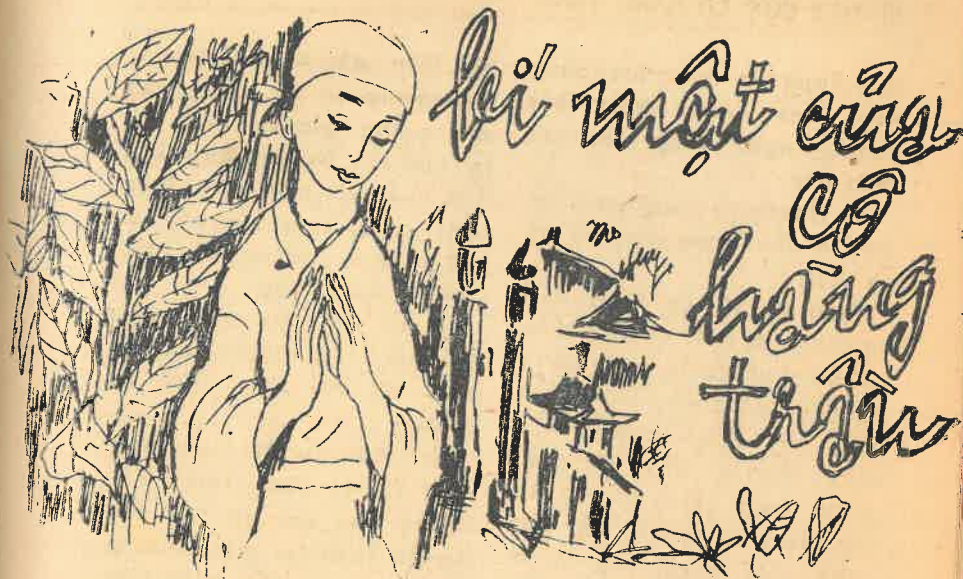 bí mật của
cô
hàng
trầu